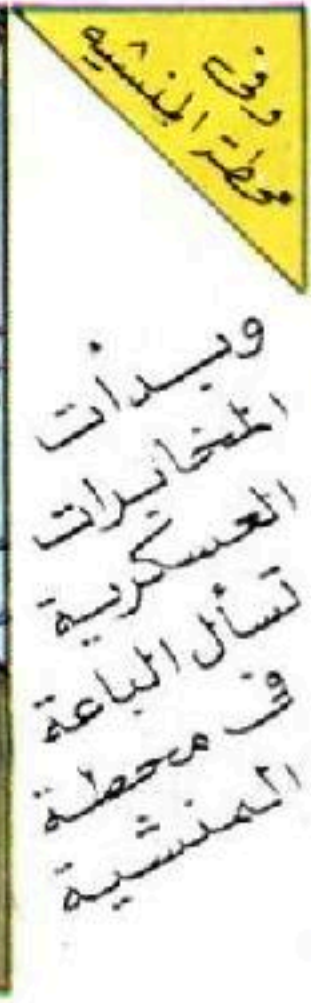 وفى
محطة المنشيه
وبدأت
المخابرات
العسكرية
تسأل الباعة
فى محطة
المنشية